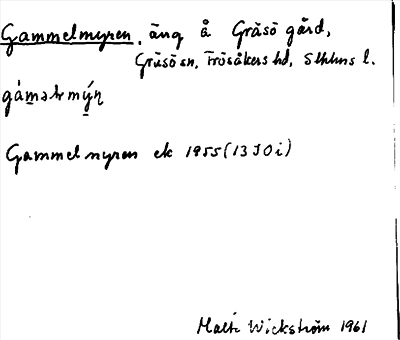 Gammelmyren, äng å Gräsö gård,
Gräsö sn, Frösåkers hd, Sthlms l.
Gammelmyren ek 1955 (13 J 0 i)
Malte Wickström 1961